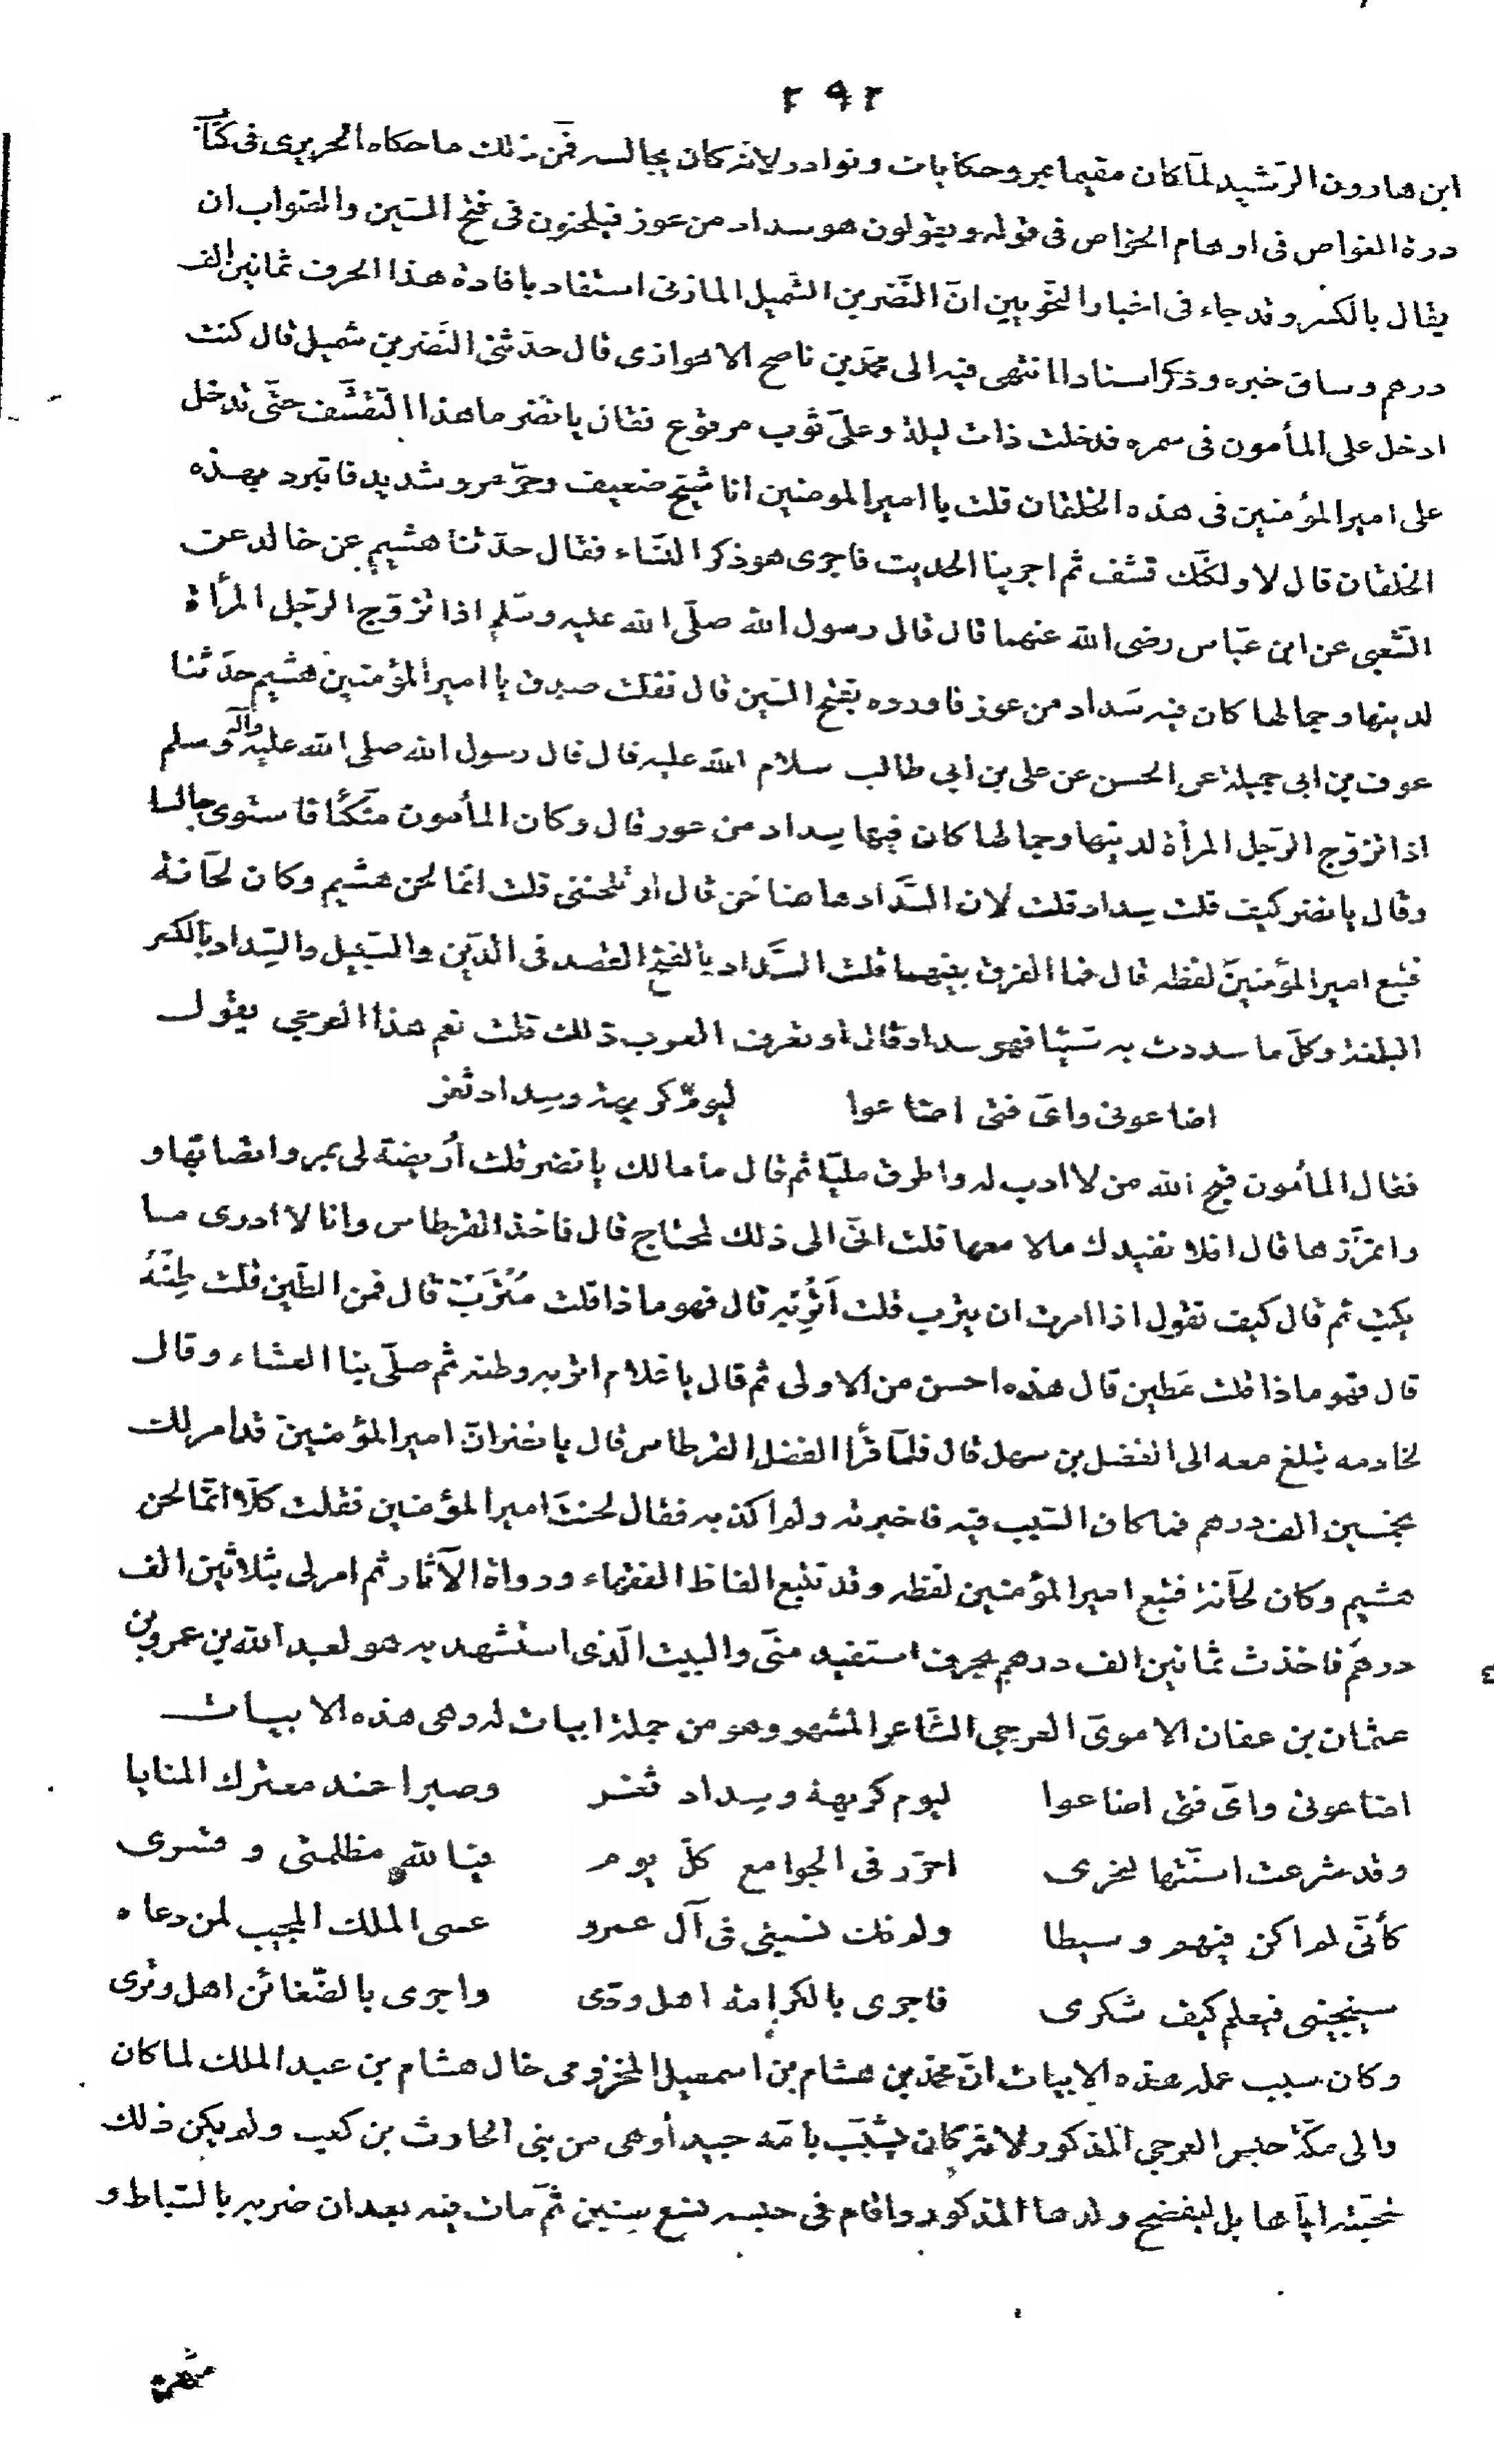 ٢٩٢
ابن هارون الرّشيد لمّا كان مقيما بمرو حكايات ونوادر لانّه كان يجالسه فمن ذلك ما حكاه الحريرى فى كتاب
درة الغواص فى اوهام الخواص فى قوله ويقولون هو سداد من عوز فيلحنون فى فتح السّين والصّواب ان
يقال بالكسر وقد جاء فى اخبار النّحويين انّ النّضر بن الشميل المازنى استفاد بافادة هذا الحرف ثمانين الف
درهم وساق خبره وذكر اسنادا انتهى فيه الى محمّد بن ناصح الاهوازى قال حدّثنى النّضر بن شميل قال كنت
ادخل على المأمون فى سمره فدخلت ذات ليلة وعلىّ ثوب مرقوع فقال يا نضر ما هذا التقشّف حتّى تدخل
على امير المؤمنين فى هذه الخلقان قلت يا امير المومنين انا شيخ ضعيف وحرّ مرو شديد فاتبرد بهذه
الخلقان قال لا ولكنّك قشف ثم اجرينا الحديث فاجرى هو ذكر النّساء فقال حدّثنا هشيم عن خالد عن
الشّعبى عن ابن عبّاس رضى الله عنهما قال قال رسول الله صلّى الله عليه وسّلم اذا تزوّج الرّجل المرأة
لدينها وجمالها كان فيه سَداد من عوز فاورده بفتح السّين قال فقلت صدق يا امير المؤمنين هشيم حدّثنا
عوف بن ابى جميلة عن الحسن عن على بن ابى طالب سلام الله عليه قال قال رسول الله صلى الله عليه وآله وسلم
اذا تزوّج الرّجل المرأة لدينها وجمالها كان فيها سِداد من عوز قال وكان المأمون متّكئا فاستوى جالسا
وقال يا نضر كيف قلت سِداد قلت لان السَّداد هاهنا لحن قال او تلحننى قلت انّما لحن هشيم وكان لحّانة
فتبع امير المؤمنين لفظه قال فما الفرق بينهما قلت السَّداد بالفتح القصد فى الدّين والسّبيل والسّداد بالكسر
البلغة وكلّ ما سددت به شيئا فهو سداد قال او تعرف العرب ذلك قلت نعم هذا العرجى يقول
اضاعونى واىّ فتى اضاعوا ليوم كريهة وسِداد ثغر
فقال المأمون قبح الله من لا ادب له واطرق مليّا ثم قال ما مالك يا نضر قلت أُريضة لى بمرو اتصابّها و
واتمزّزها قال افلا نفيدك مالا معها قلت انّى الى ذلك لمحتاج قال فاخذ القرطاس وانا لا ادرى ما
يكتب ثم قال كيف تقول اذا امرت ان يترب قلت اَتْرِبْه قال فهو ماذا قلت مُتْرَبٌ قال فمن الطّين قلت طِنْهُ
قال فهو ماذا قلت مَطين قال هذه احسن من الاولى ثم قال يا غلام اتربه وطنه ثم صلّى بنا العشاء وقال
لخادمه تبلغ معه الى الفضل بن سهل قال فلمّا قرأ الفضل القرطاس قال يا نضر انّ امير المؤمنين قد امر لك
بخمسين الف درهم فما كان السّبب فيه فاخبرته ولم اكذبه فقال لحنتَ امير المؤمنين فقلت كلّا انّما لحن
هشيم وكان لحّانة فتبع امير المؤمنين لفظه وقد تتبع الفاظ الفقهاء ورواة الآثار ثم امر لى بثلاثين الف
درهم فاخذت ثمانين الف درهم بحرف استفيد منّى والبيت الّذى استشهد به هو لعبد الله بن عمرو بن
عثمان بن عفان الاموىّ العرجى الشّاعر المشهور وهو من جملة ابيات له وهى هذه الابيات
اضاعونى واىّ فتى اضاعوا ليوم كريهة وسِداد ثغر وصبرا عند معترك المنايا
وقد شرعت اسنّتها لنحرى اجرّر فى الجوامع كلّ يوم فيا لله مظلمتى وقسرى
كأنّى لم اكن فيهم وسيطا ولم تك نسبتى فى آل عمرو عسى الملك المجيب لمن دعاه
سينجينى فيعلم كيف شكرى فاجزى بالكرامة اهل ودّى واجزى بالضّغائن اهل وترى
وكان سبب عمله هذه الابيات انّ محمّد بن هشام بن اسمعيل المخزومى خال هشام بن عبد الملك لما كان
والى مكّة حبس العرجى المذكور لانّه كان يشبّب بامّه جيدأ وهى من بنى الحارث بن كعب ولم يكن ذلك
لمحبّته ايّاها بل ليفضح ولدها المذكور واقام فى حبسه تسع سنين ثمّ مات فيه بعد ان ضربه بالسّياط و